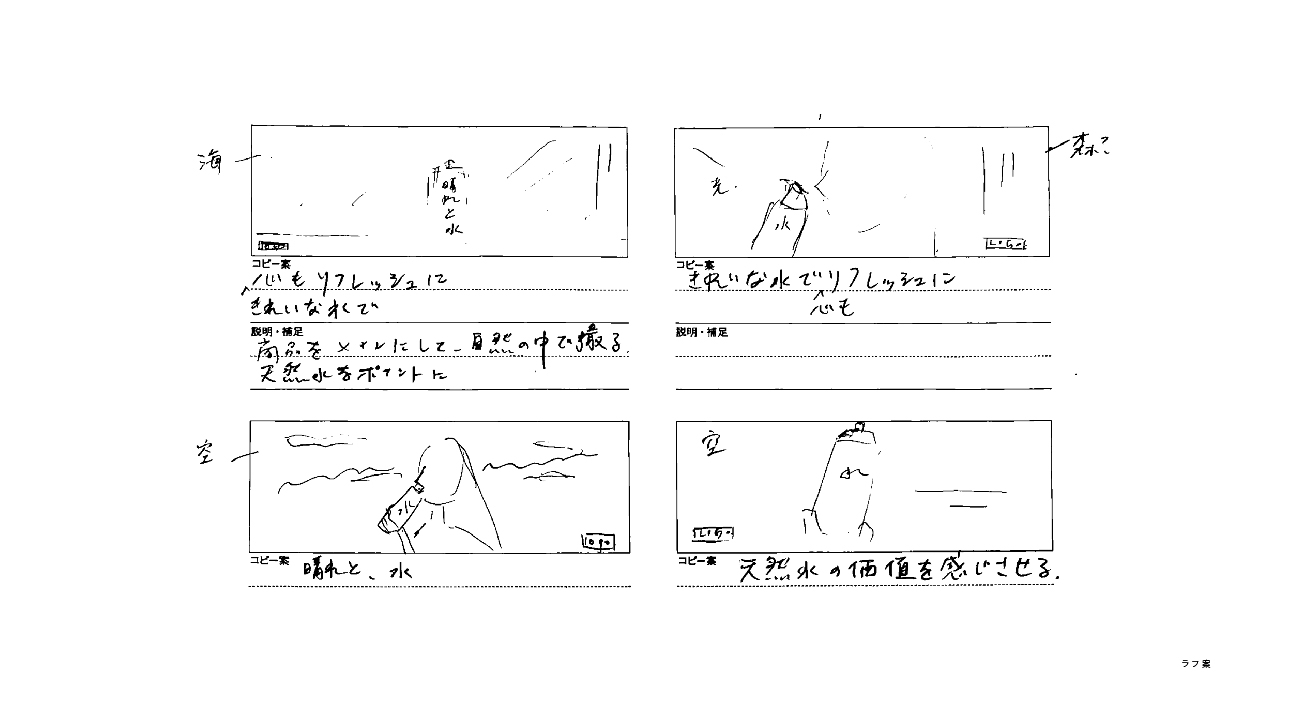 海
晴れと水
LOGO
コピー案
心もリフレッシュに
きれいな水で
説明・補足
商品をメインにして、自然の中で撮る。
天然水をポイントに
光
水
LOGO
コピー案
きれいな水でリフレッシュに
心も
説明・補足
空
水
logo
コピー案 晴れと、水
空
水
LOGO
コピー案 天然水の価値を感じさせる。
ラフ案